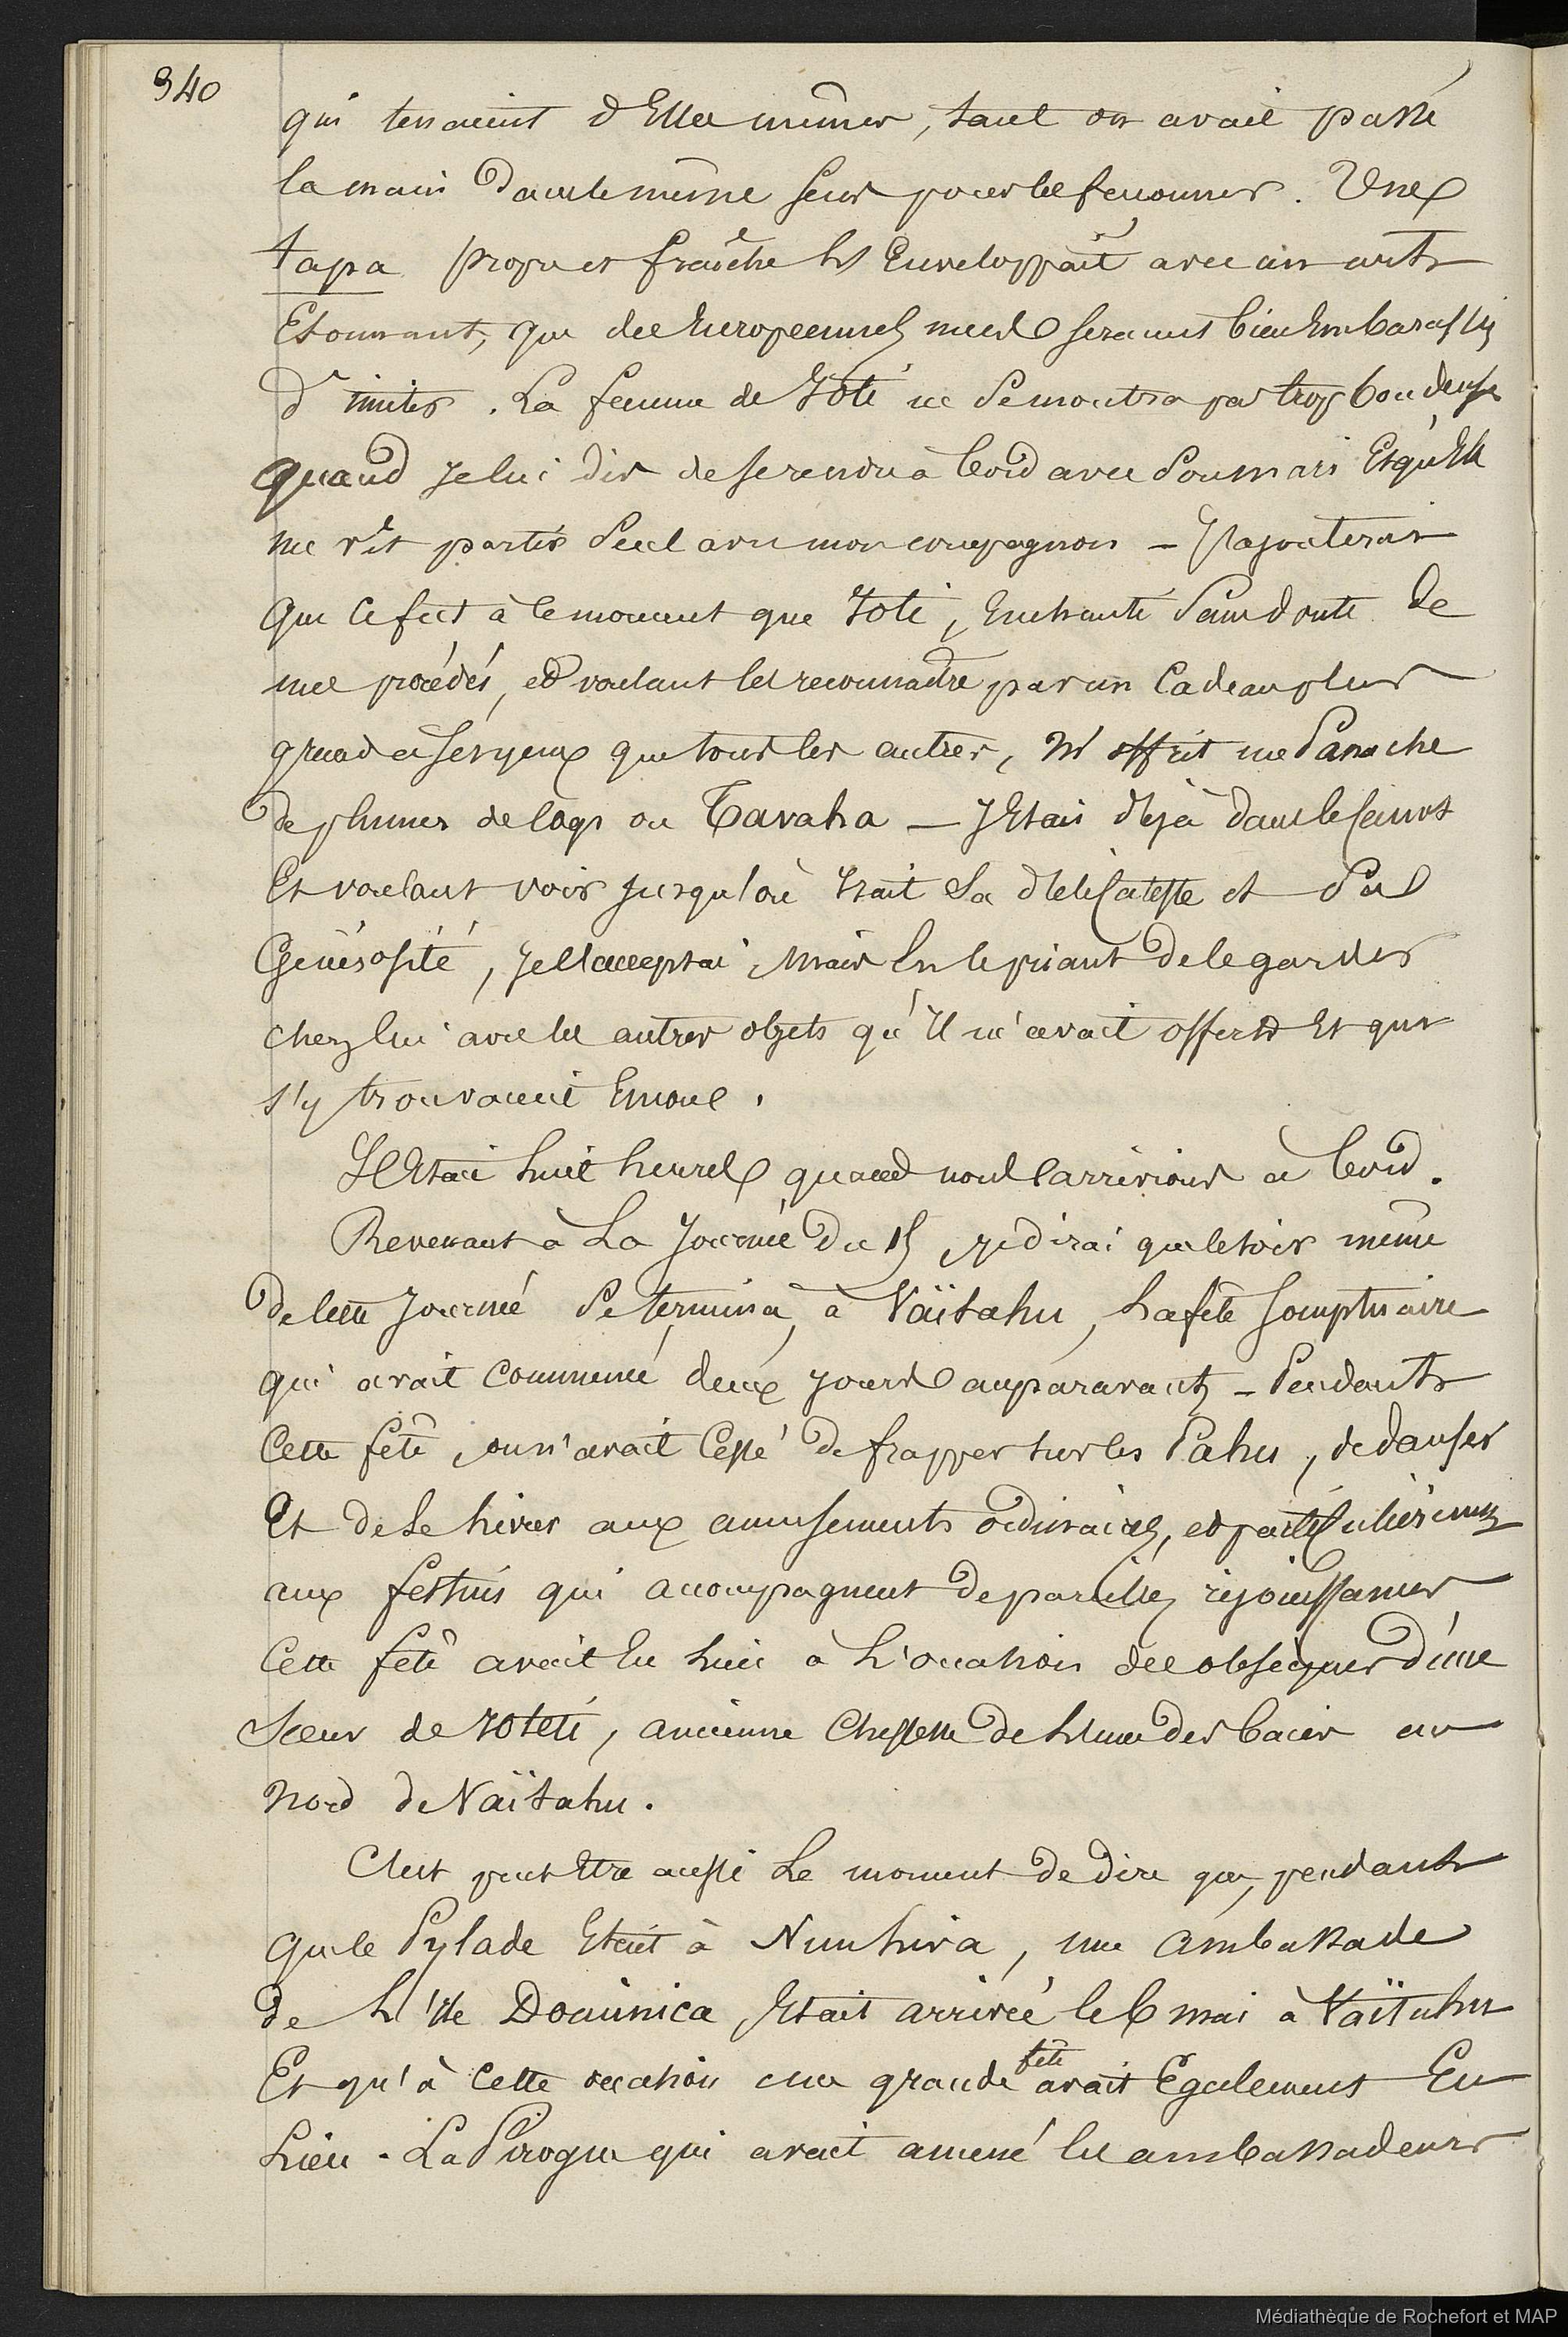 340
qui tenaient d'Elles mêmes, tant on avait passé
la main dans le même sens pour les façonner. Une
tapa propre et fraîche les Enveloppait avec un art
Etonnant, que des Européennes mêmes seraient bien Embarassées
d'imiter. La femme de Yoté ne se montra pas trop boudeuse
quand je lui dis de se rendre à bord avec son mari Et qu'Elle
me vit partir seul avec mon compagnon — J'ajouterai
que ce fut à ce moment que Yoté, Enchanté sans doute de
mes procédés, et voulant les reconnaître par un Cadeau plus
grand à ses yeux que tous les autres, m'offrit un Panache
de plumes de coqs ou Tavaha — J'Etais déjà dans le canot
Et voulant voir jusqu'où irait sa délicatesse et sa
Générosité, je l'acceptai, mais En le priant de le garder
chez lui avec les autres objets qu'Il m'avait offerts Et qui
s'y trouvaient Encore.
Il Etait huit heures quand nous arrivions à bord.
Revenant à La Journée du 15, je dirai que le soir même
de cette Journée se termina, à Vaïtahu, La fête somptuaire
qui avait commencé deux jours auparavant — Pendant
Cette fête, on n'avait Cessé de frapper sur les Pahu, de danser
Et de se livrer aux amusements ordinaires, et particulièrement
aux festins qui accompagnent de pareilles réjouissances
Cette fête avait Eu lieu à L'occasion des obsèques d'une
Sœur de Yotété, ancienne Cheffesse de L'une des baies au
Nord de Vaïtahu.
C'est peut Etre aussi Le moment de dire que, pendant
que le Pylade Etait à Nuuhiva, une ambassade
de L'Ile Dominica, Etait arrivée le 6 mai à Vaïtahu
Et qu'à Cette occasion une grande fête avait Egalement Eu
Lieu. La Pirogue qui avait amené les ambassadeurs
Médiathèque de Rochefort et MAP